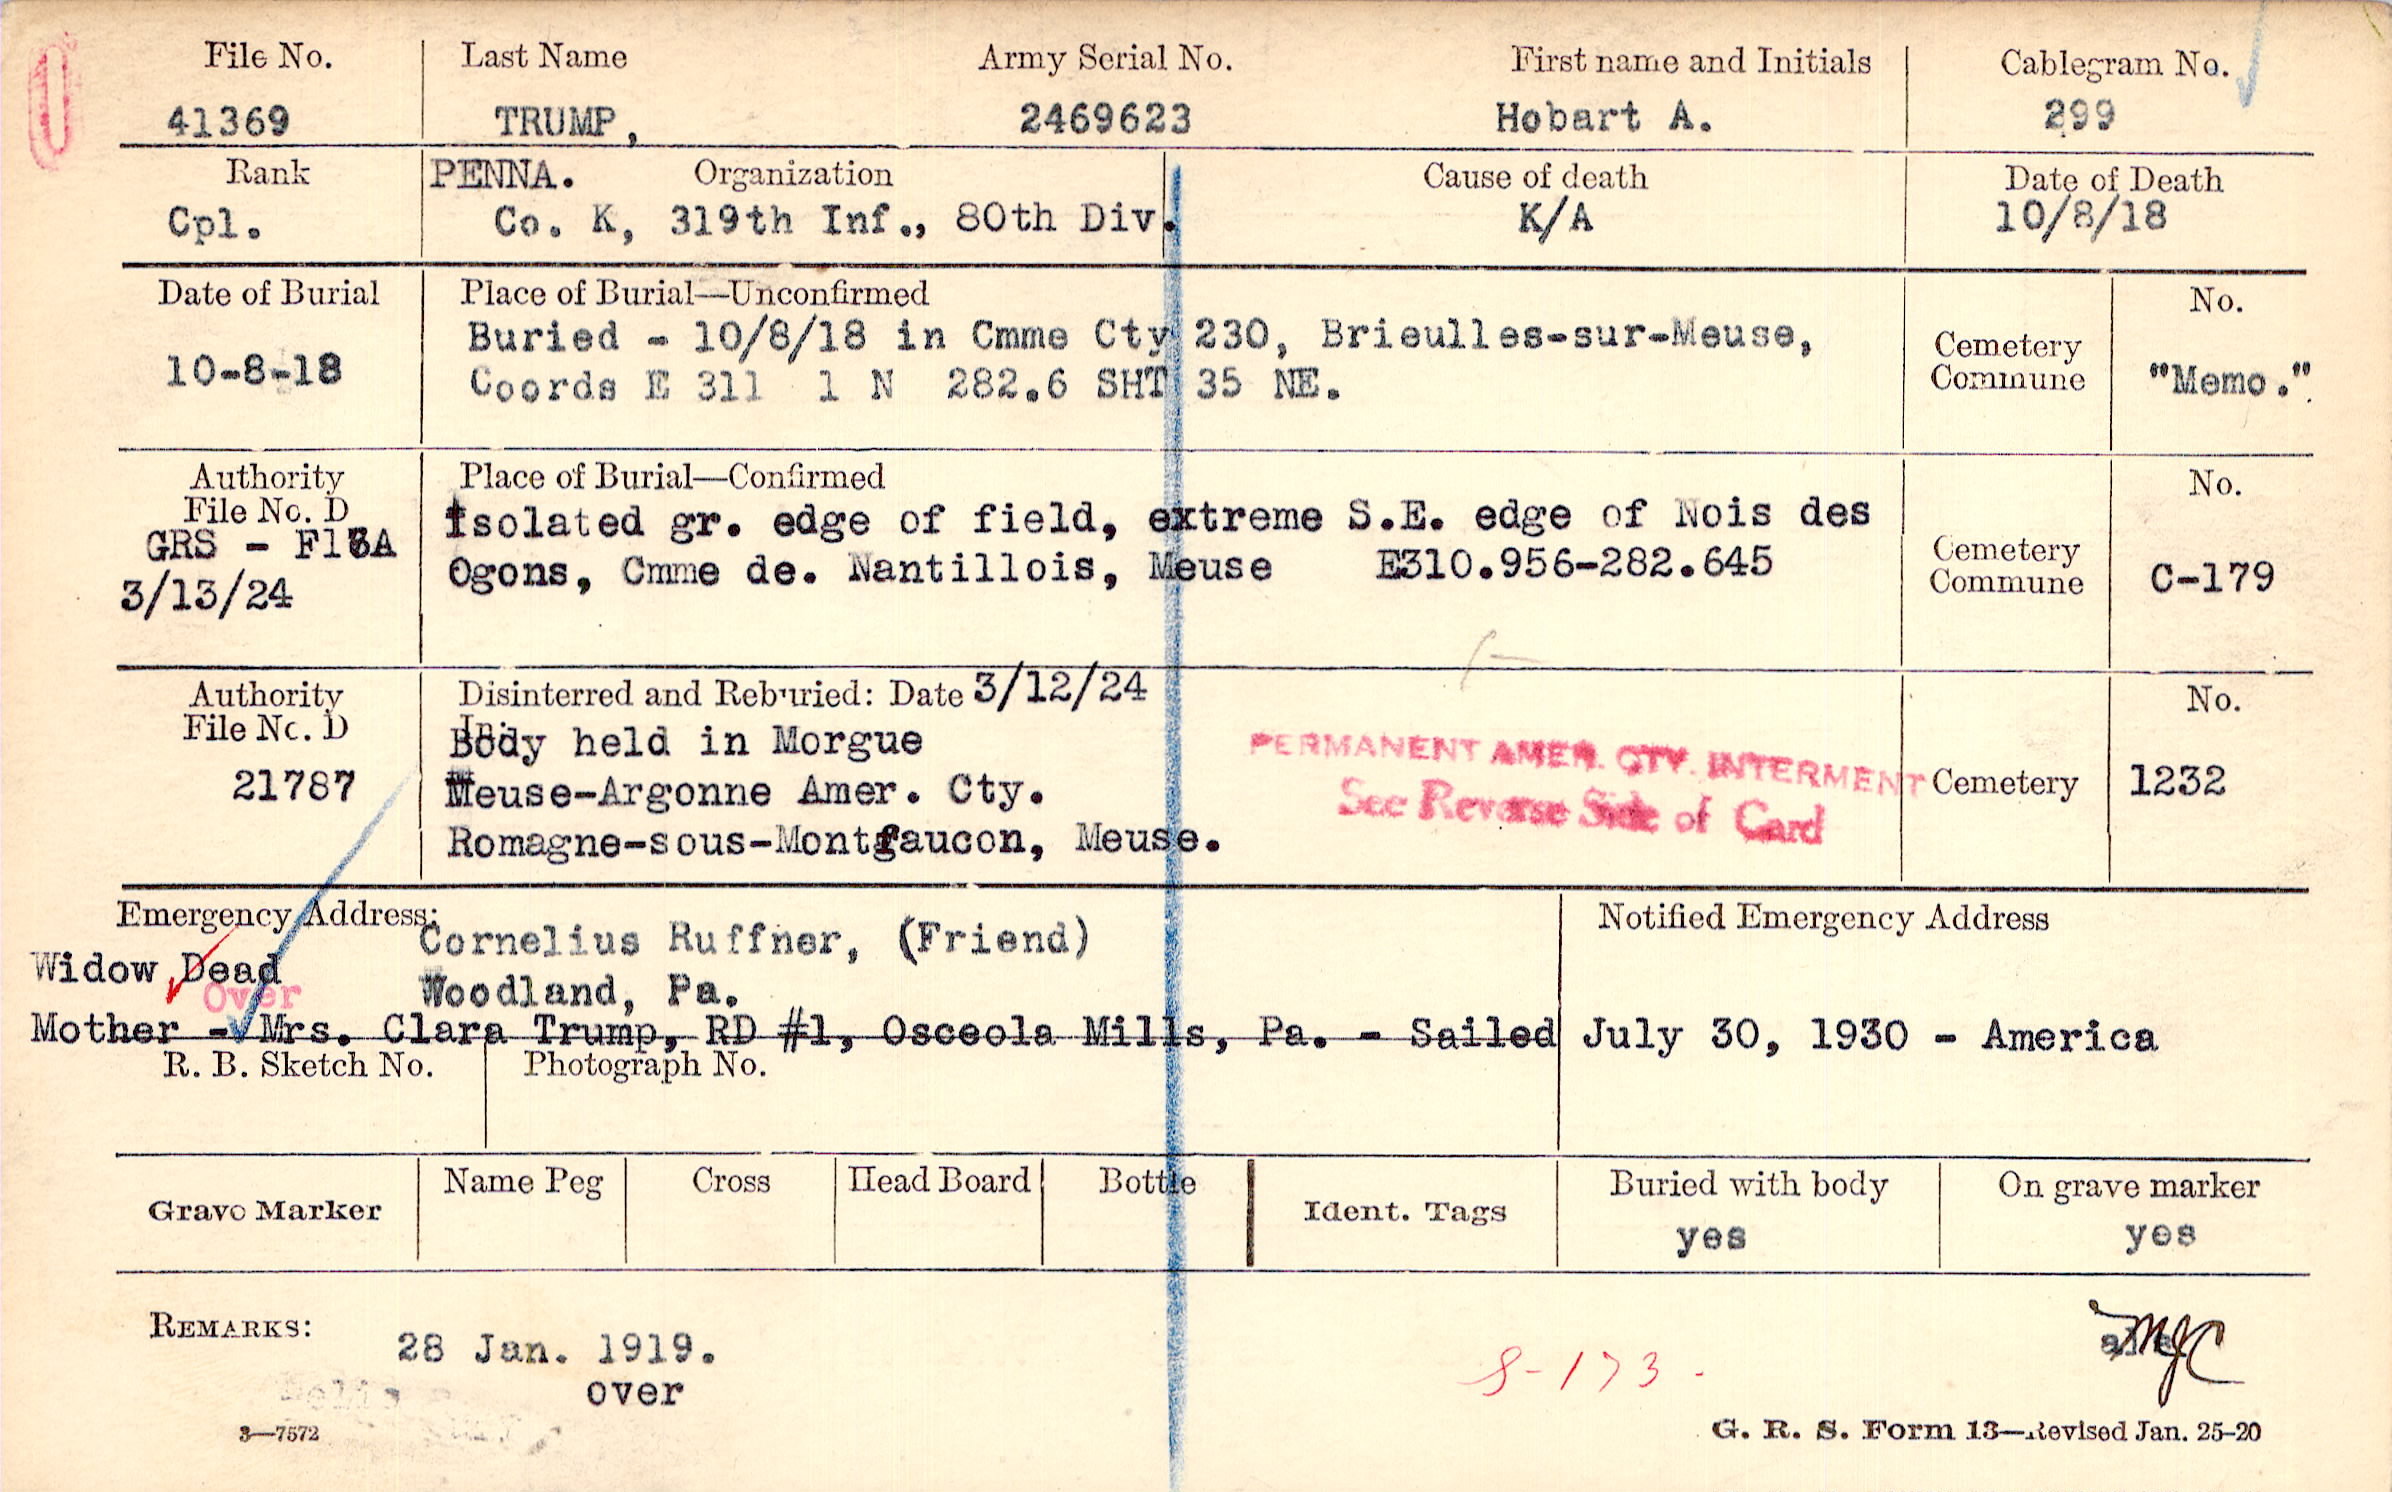 File No. Last Name Army Serial No. First name and Initials Cablegram No.
41369 TRUMP, 2469623 Hobart A. 299
Rank PENNA. Organization Cause of death Date of Death
Cpl. Co. K, 319th Inf., 80th Div. K/A 10/8/18
Date of Burial Place of Burial—Unconfirmed No.
Buried - 10/8/18 in Cmme Cty 230, Brieulles-sur-Meuse,
10-8-18 Coords E 311 1 N 282.6 SHT 35 NE.
Cemetery
Commune "Memo."
Authority Place of Burial—Confirmed No.
File No. D Isolated gr. edge of field, extreme S.E. edge of Nois des
GRS - Ogons, Cmme de. Nantillois, Meuse E310.956-282.645
3/13/24
Cemetery
Commune C-179
Authority Disinterred and Reburied: Date 3/12/24 No.
File No. D In:
Body held in Morgue
21787 Meuse-Argonne Amer. Cty.
Romagne-sous-Montfaucon, Meuse.
PERMANENT AMER. CTY. INTERMENT
See Reverse Side of Card
Cemetery 1232
Emergency Address: Notified Emergency Address
Cornelius Ruffner, (Friend)
Widow Dead
Over
Woodland, Pa.
Mother - Mrs. Clara Trump, RD #1, Osceola Mills, Pa. - Sailed July 30, 1930 - America
R. B. Sketch No. Photograph No.
Grave Marker Name Peg Cross Head Board Bottle Ident. Tags Buried with body On grave marker
yes yes
REMARKS: 28 Jan. 1919.
over
8-173-
MJC
3—7572
G. R. S. Form 13—Revised Jan. 25-20